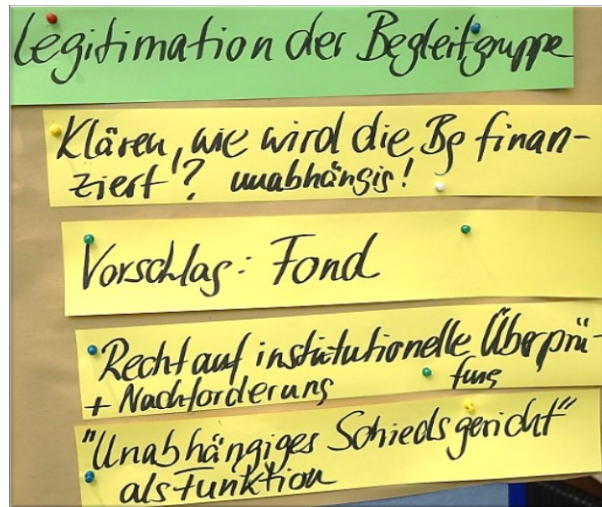 Legitimation der Begleitgruppe
Klären, wie wird die Bg finan-
ziert? unabhängig!
Vorschlag: Fond
Recht auf institutionelle Überprü-
+ Nachforderung fung
"Unabhängiges Schiedsgericht"
als Funktion